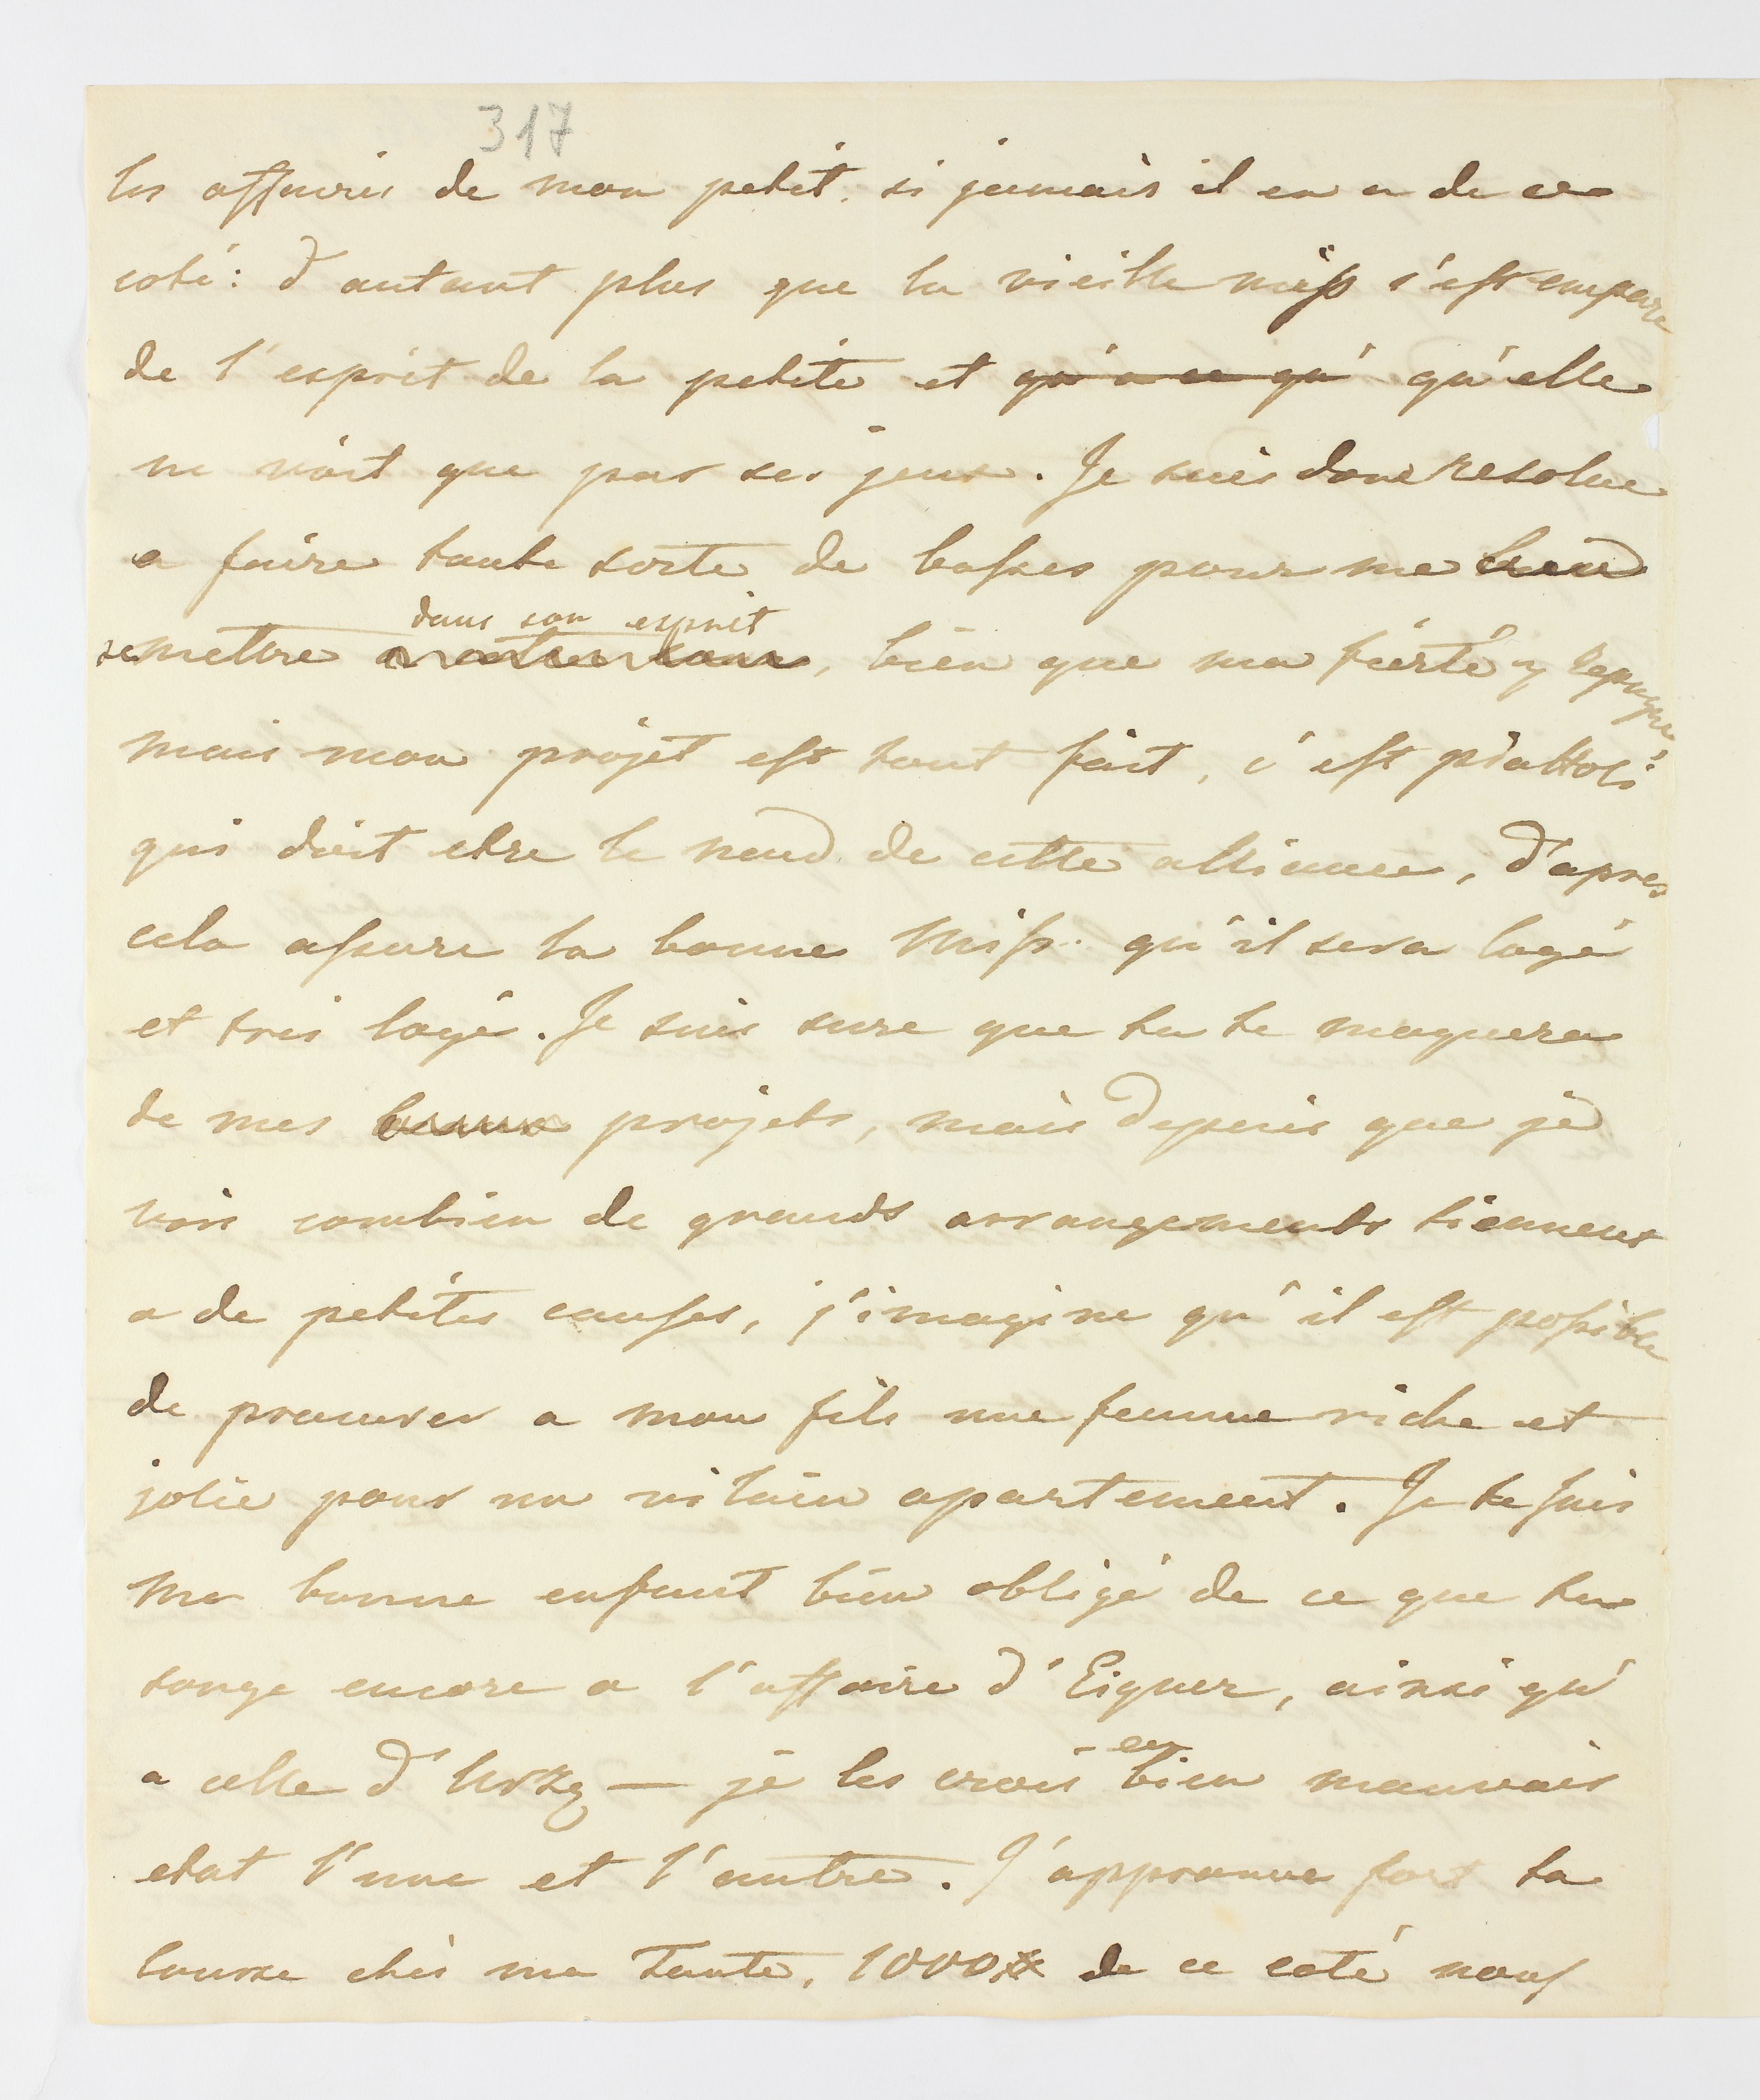 317
les affaires de mon petit. si jamais il en a de ce
coté: d'autant plus que la vieille miss s'est emparé
de l'esprit de la petite et qu'a ce qu' qu'elle
ne voit que par ses jeux. Je suis donc resolue
a faire toute sorte de basses pour me bien
dans son esprit
remettre, bien que ma fierté y repugne,
mais mon projet est tout fait, c'est piattoli
qui doit etre le neud de cette alliance, d'apres
cela assure la bonne Miss. qu'il sera logé
et tres logé. Je suis sure que tu te moquera
de mes beaux projets, mais depuis que je
vois combien de grands arrangements tiennent
a de petites causes, j'imagine qu'il est possible
de procurer a mon fils une femme riche et
jolie pour un vilain apartement. Je te suis
ma bonne enfant bien obligé de ce que tu
songe encore a l'affaire d'Eigner, ainsi qu'
a celle d'Urzg — je les crois en bien mauvais
etat l'une et l'autre. J'approuve fort ta
course chès ma Tante, 1000 # de ce coté nous